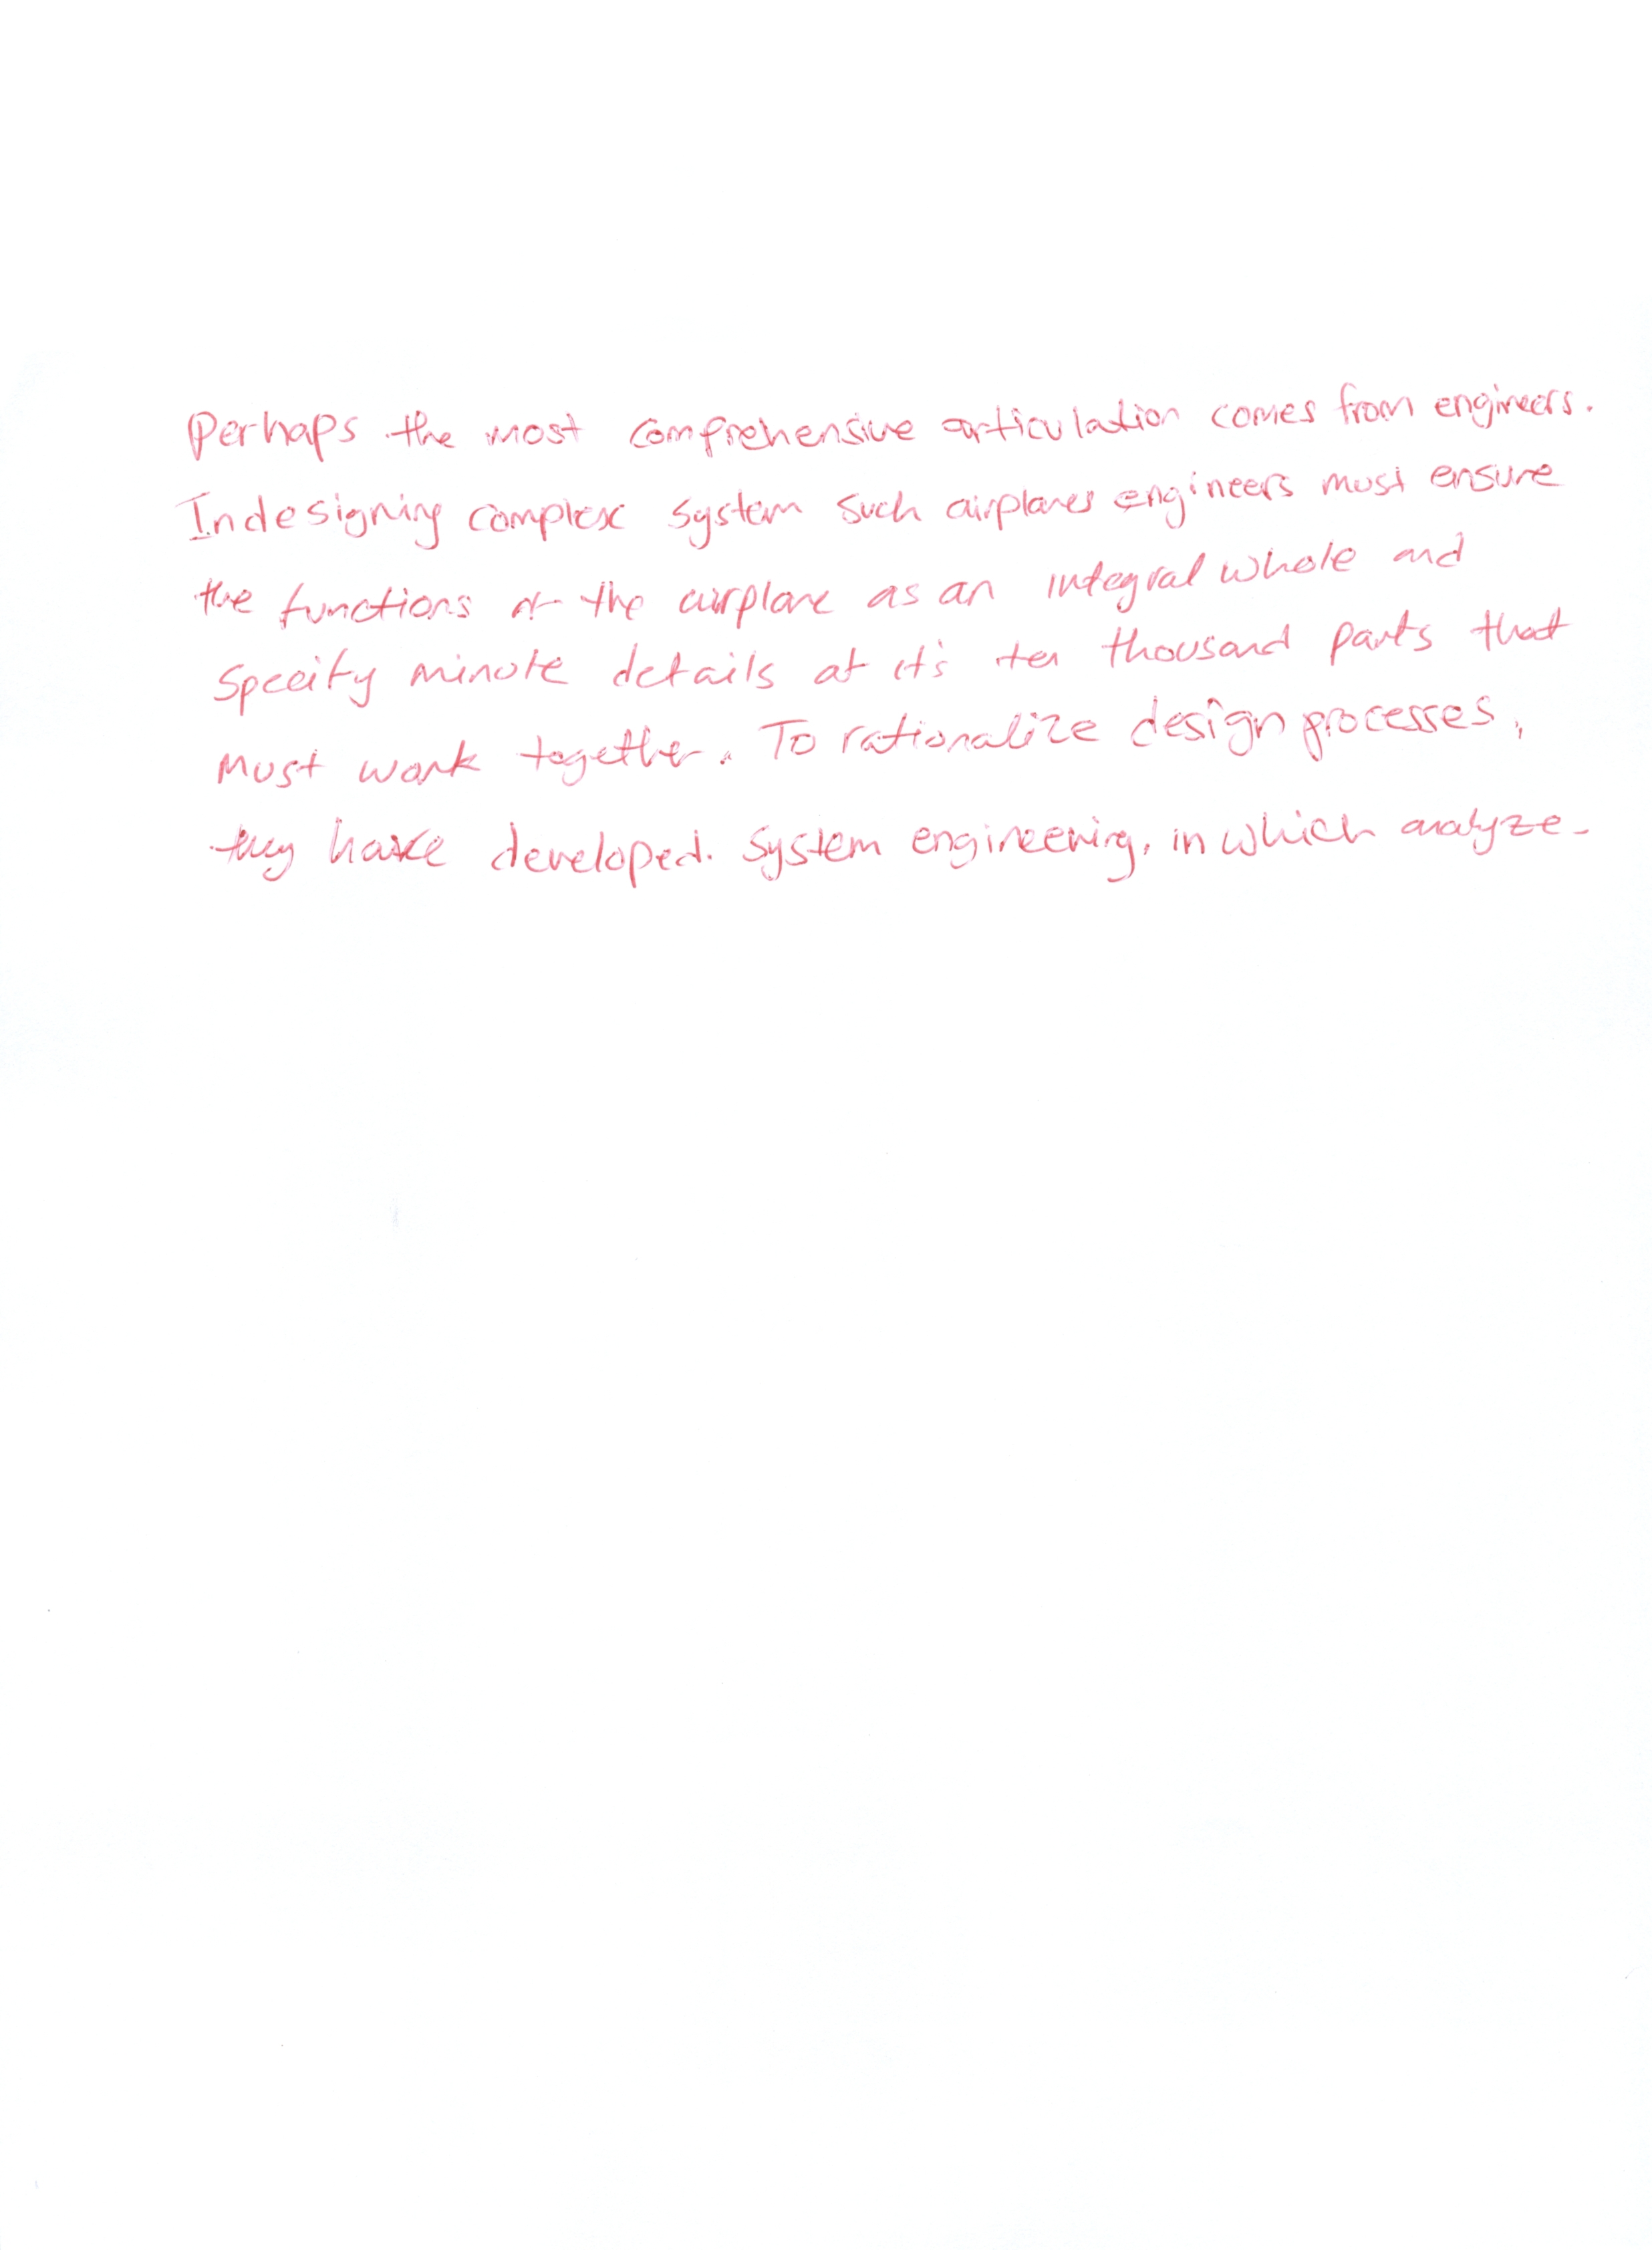 Perhaps the most comprehensive articulation comes from engineers.
Indesigning complex system such airplanes engineers must ensure
the functions of the airplane as an integral whole and
specify minute details of it's ten thousand parts that
must work together. To rationalize design processes,
they have developed. System engineering, in which analyze-